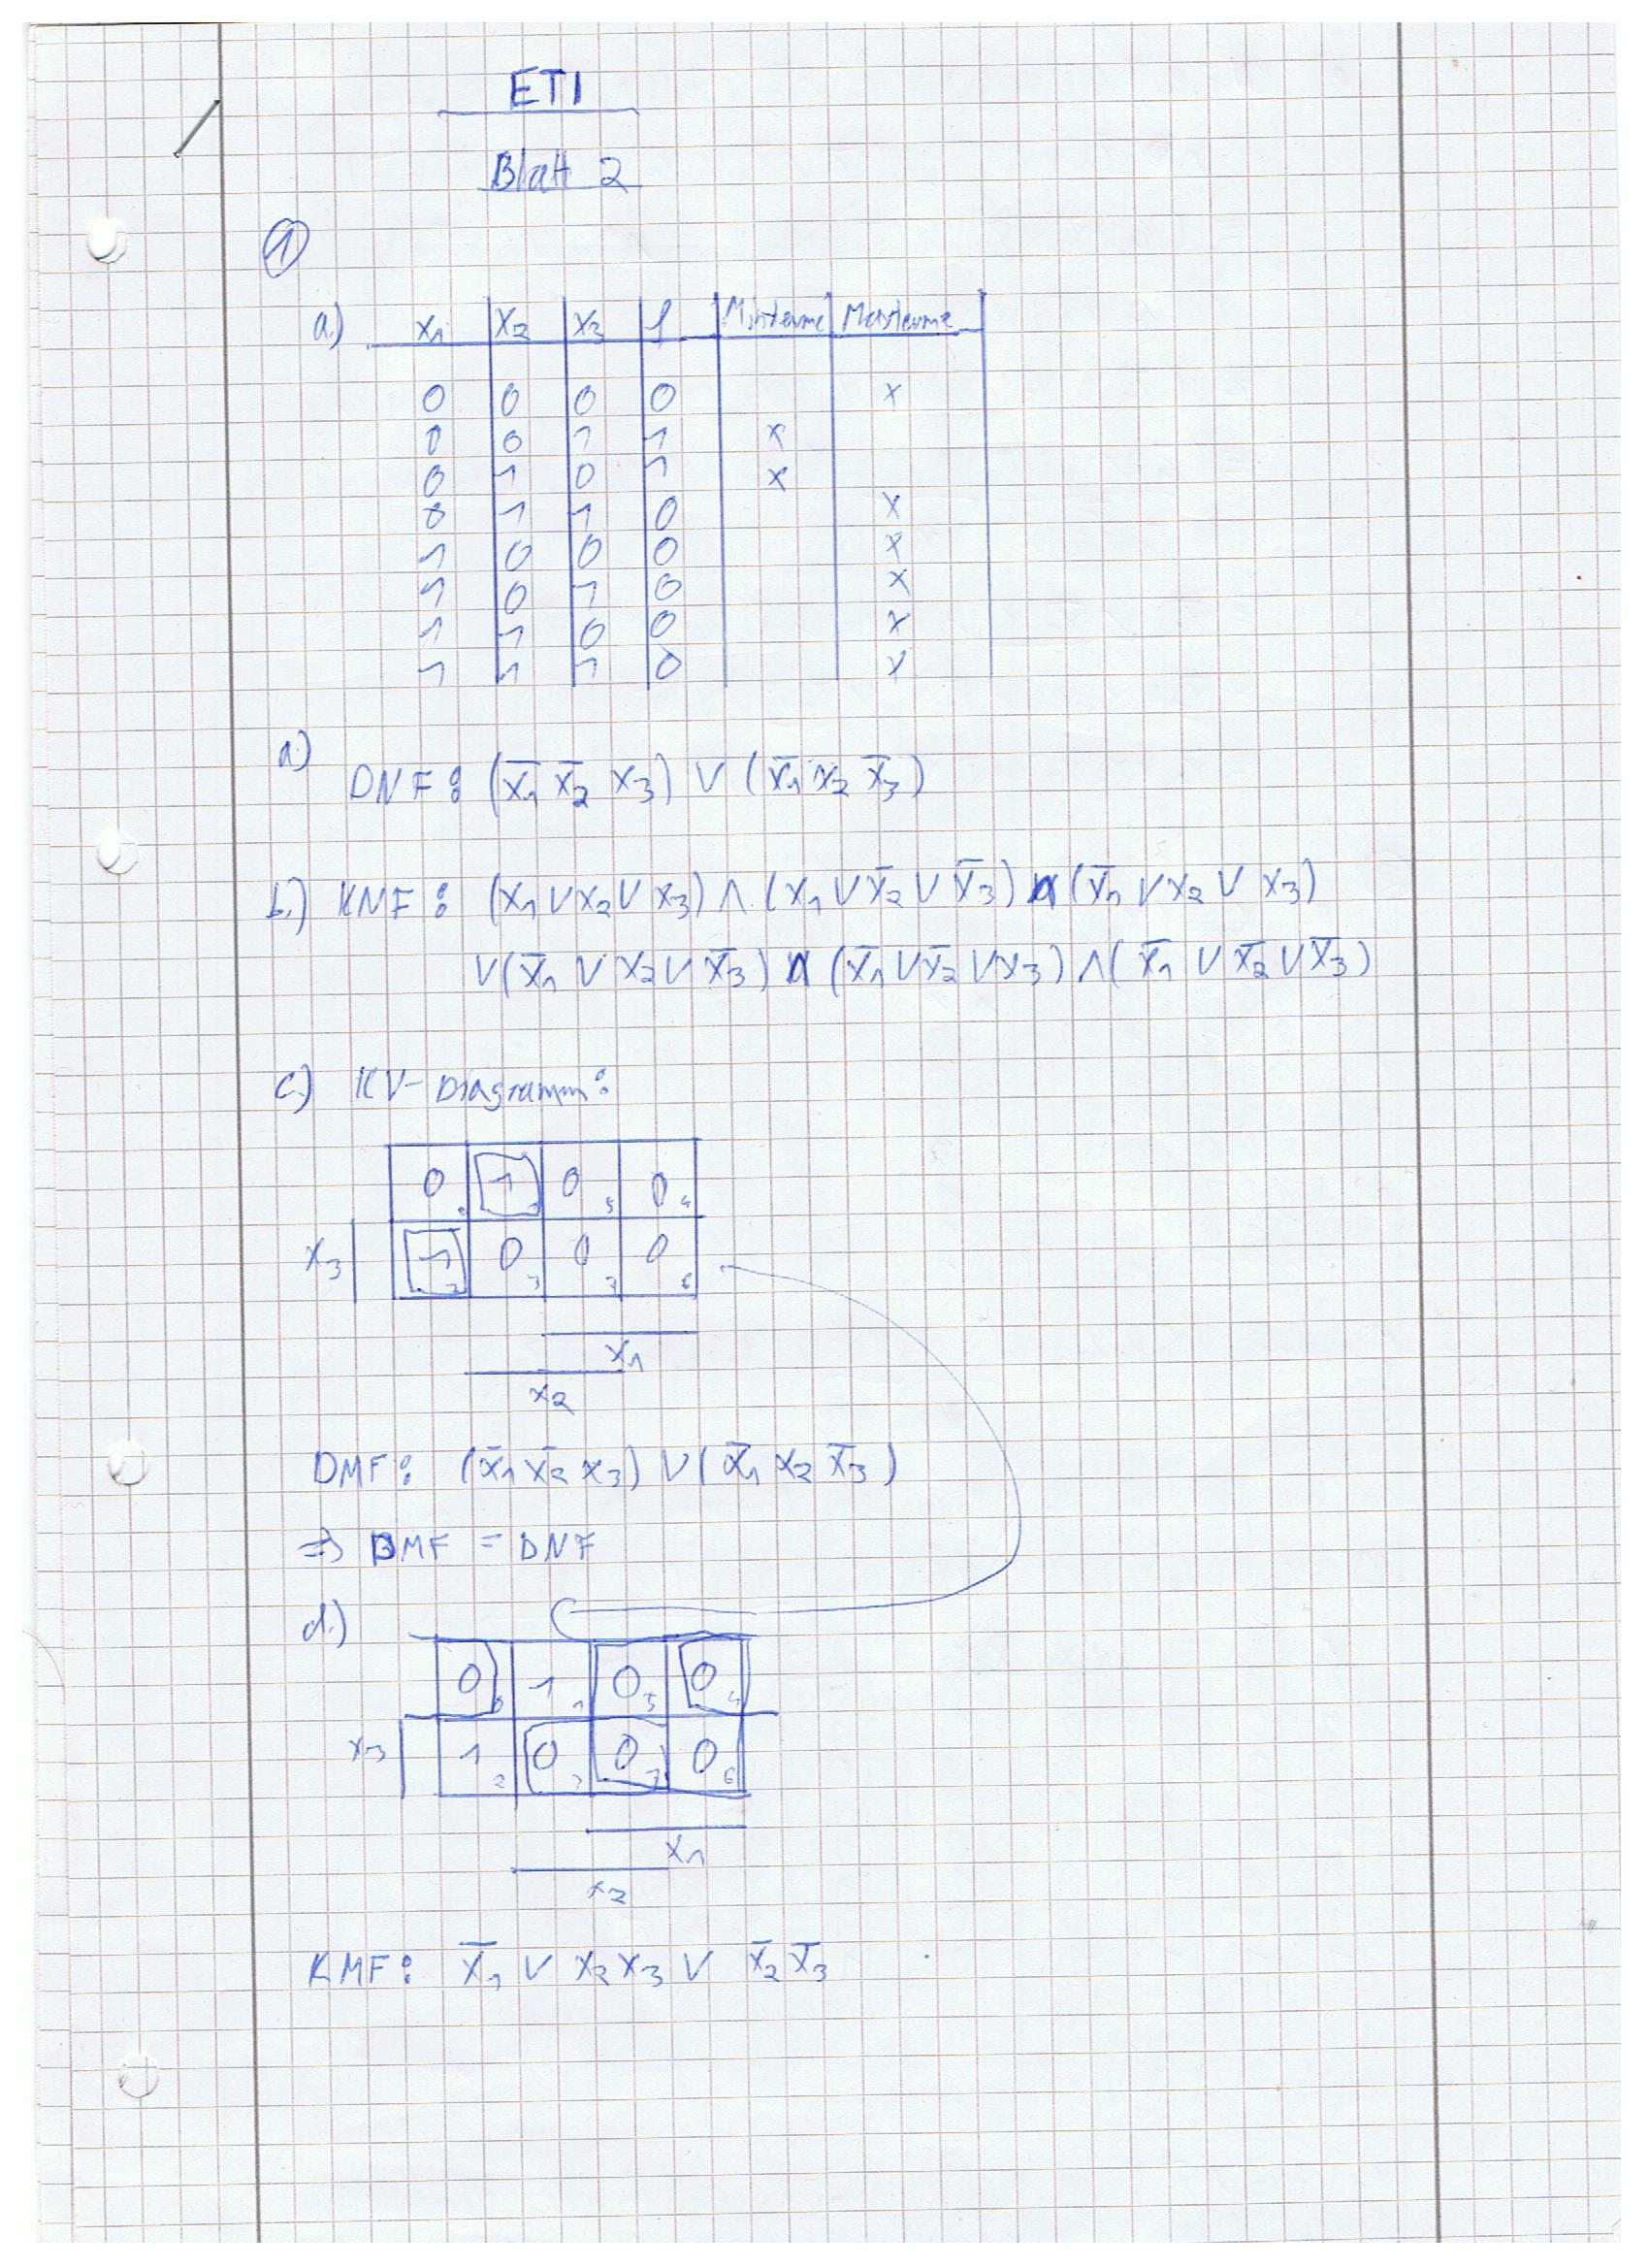 ETI
Blatt 2
①
a.) x₁ x₂ x₃ f Minterme Maxterme
0 0 0 0 x
0 0 1 1 x
0 1 0 1 x
0 1 1 0 x
1 0 0 0 x
1 0 1 0 x
1 1 0 0 x
1 1 1 0 x
a.)
DNF: (x̅₁ x̅₂ x₃) ∨ (x̅₁ x₂ x̅₃)
b.) KNF: (x₁ ∨ x₂ ∨ x₃) ∧ (x₁ ∨ x̅₂ ∨ x̅₃) ∧ (x̅₁ ∨ x₂ ∨ x₃)
∨ (x̅₁ ∨ x₂ ∨ x̅₃) ∧ (x̅₁ ∨ x̅₂ ∨ x₃) ∧ (x̅₁ ∨ x̅₂ ∨ x̅₃)
c.) KV-Diagramm:
0 0 1 1 0 5 0 4
x₃ 1 2 0 3 0 7 0 6
x₁
x₂
DMF: (x̅₁ x̅₂ x₃) ∨ (x̅₁ x₂ x̅₃)
⇒ DMF = DNF
d.)
0 0 1 1 0 5 0 4
x₃ 1 2 0 3 0 7 0 6
x₁
x₂
KMF: x̅₁ ∨ x₂ x₃ ∨ x̅₂ x̅₃